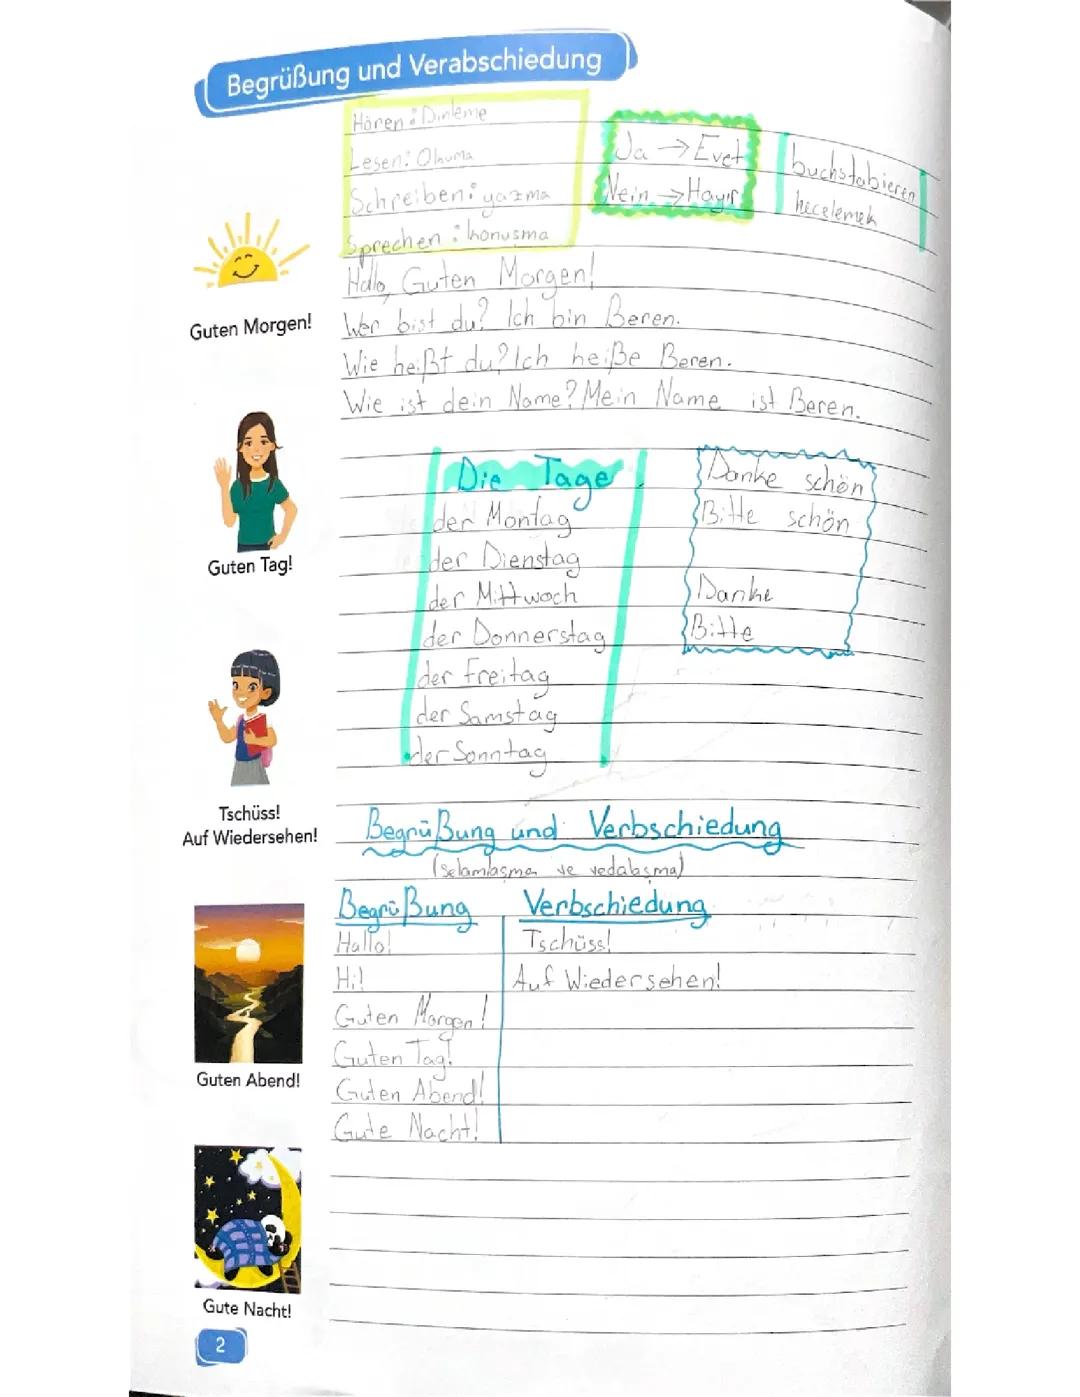 Begrüßung und Verabschiedung
Hören : Dinleme
Lesen : Okuma
Schreiben : yazma
Sprechen : konusma
Ja → Evet
Nein → Hayır
buchstabieren
hecelemek
Hallo, Guten Morgen!
Guten Morgen!
Wer bist du? Ich bin Beren.
Wie heißt du? Ich heiße Beren.
Wie ist dein Name? Mein Name ist Beren.
Guten Tag!
Die Tage
der Montag
der Dienstag
der Mittwoch
der Donnerstag
der Freitag
der Samstag
der Sonntag
Danke schön
Bitte schön
Danke
Bitte
Tschüss!
Auf Wiedersehen!
Begrüßung und Verbschiedung
(selamlaşma ve vedalaşma)
Begrüßung
Hallo!
Hi!
Guten Morgen!
Guten Tag!
Guten Abend!
Gute Nacht!
Verbschiedung
Tschüss!
Auf Wiedersehen!
Guten Abend!
Gute Nacht!
2